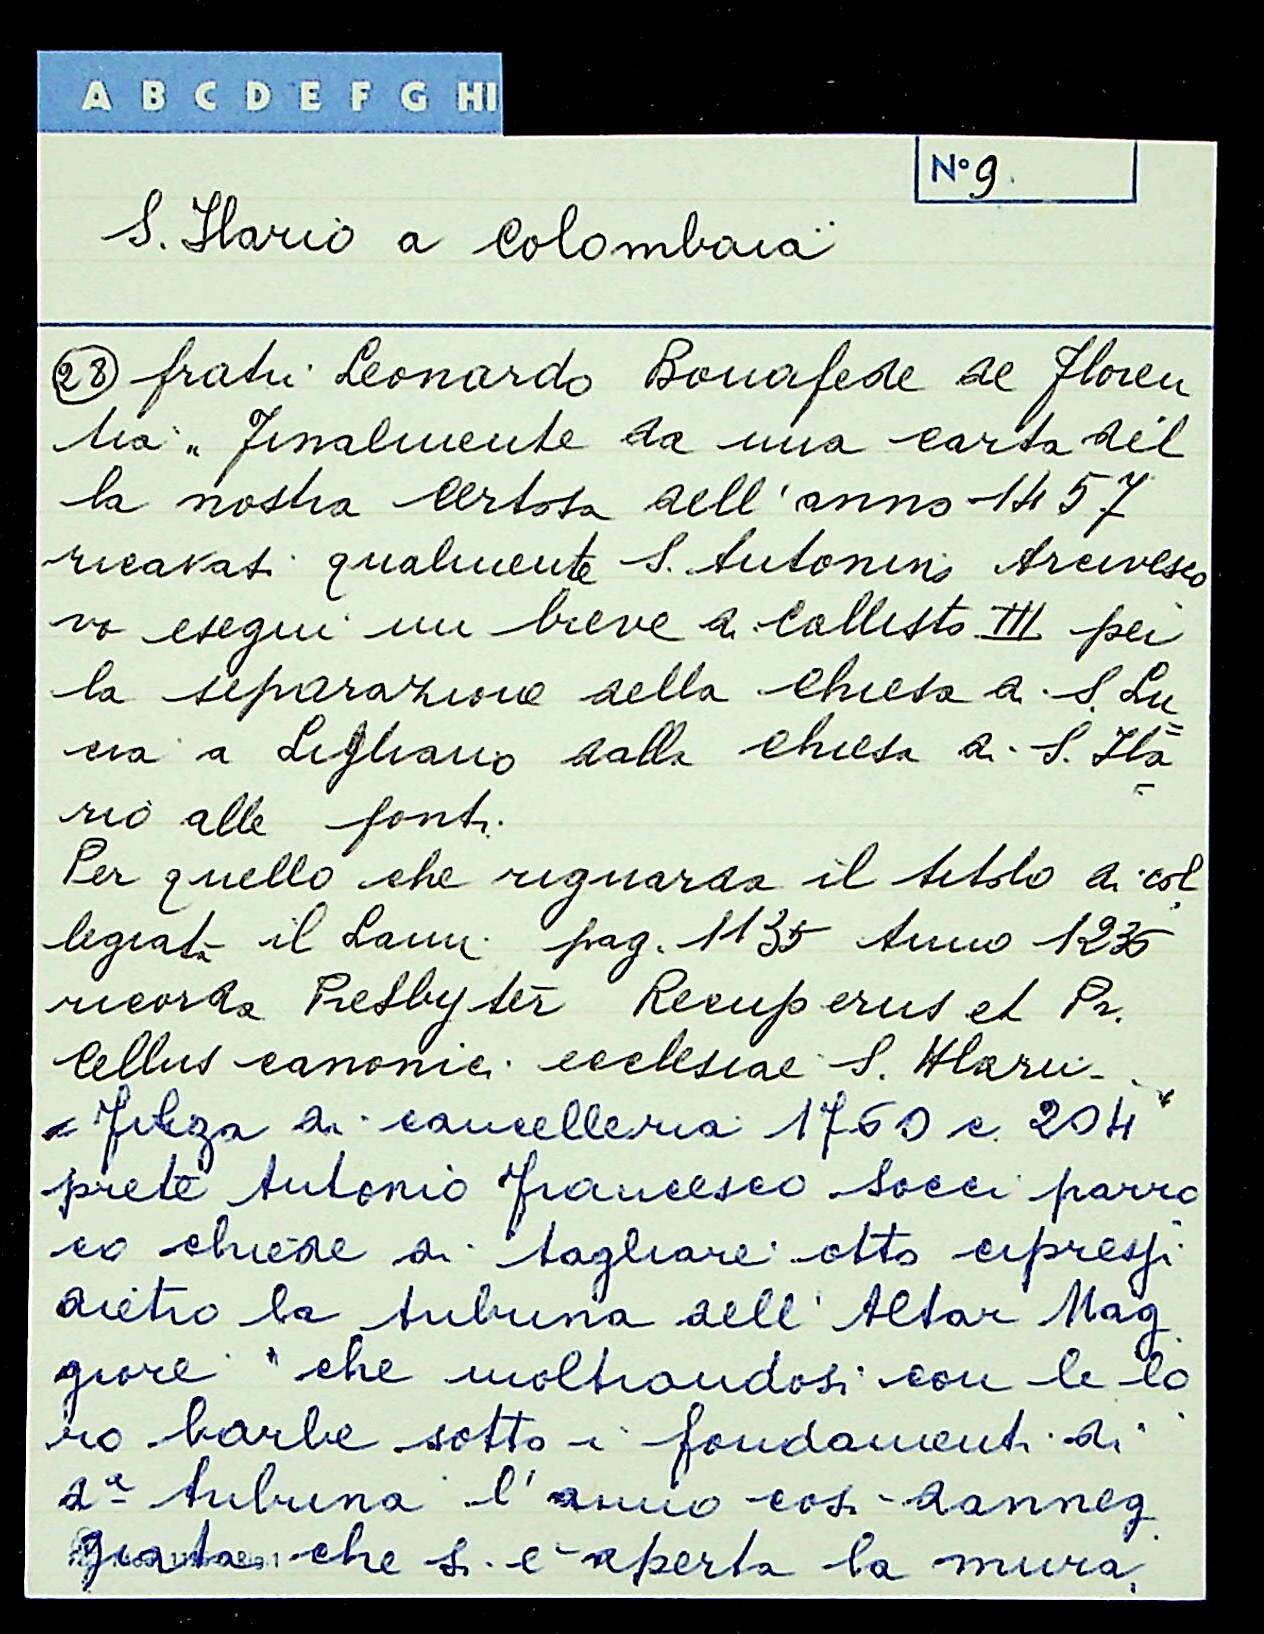 A B C D E F G HI
N° 9.
S. Ilario a Colombaia
28 fratri Leonardo Bonafede de Floren
tia" Finalmente da una carta del
la nostra Certosa dell'anno 1457
ricavasi qualmente S. Antonino Arcivesco
vo eseguì un breve di Callisto III per
la separazione della chiesa di S. Lu=
cia a Legliano dalla chiesa di S. Ila=
rio alle fonti.
Per quello che riguarda il titolo di col
legiata il Lami pag. 1135 Anno 1235
ricorda Presbyter Recuperus et Pr.
Cellus canonici ecclesiae S. Hlarii -
= Filza di cancelleria 1760 c. 204
prete Antonio Francesco Socci parro
co chiede di tagliare otto cipressi
dietro la tribuna dell'Altar Mag
giore "che inoltrandosi con le lo
ro barbe sotto i fondamenti di
da tribuna l'anno così danneg
giata che si è aperta la mura,